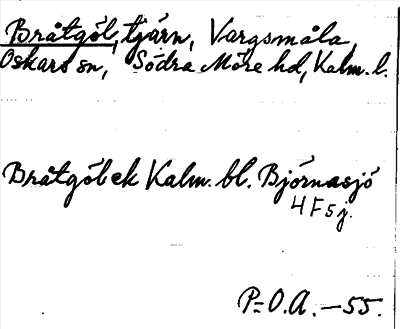 Bråtgöl, tjärn, Vargsmåla,
Oskars sn, Södra Möre hd, Kalm. l.
Bråtgöl ek Kalm. bl. Björnasjö
4 F 5 j.
P=O.A. -55.